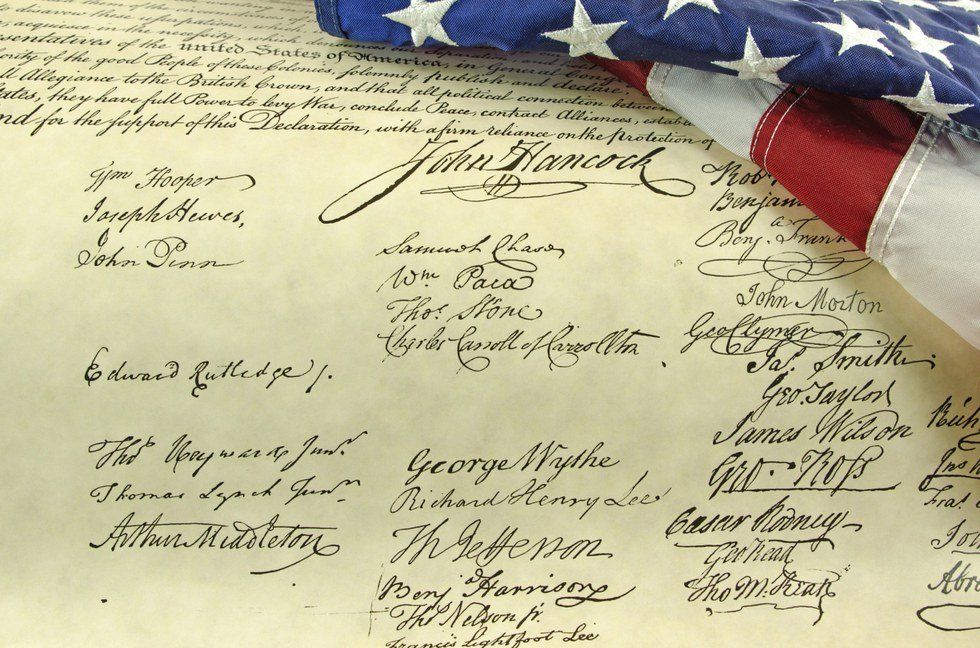 acquiesce in the necessity, which
Representatives of the united States of America, in General Cong
ority of the good People of these Colonies, solemnly publish and declare,
ll Allegiance to the British Crown, and that all political connection between
tates, they have full Power to levy War, conclude Peace, contract Alliances, estab
nd for the support of this Declaration, with a firm reliance on the protection of
John Hancock
Wm Hooper
Joseph Hewes,
John Penn
Edward Rutledge /.
Thos Heyward Junr.
Thomas Lynch Junr.
Arthur Middleton
Samuel Chase
Wm. Paca
Thos. Stone
Charles Carroll of Carrollton
George Wythe
Richard Henry Lee
Th Jefferson
Benj Harrison
Thos Nelson jr.
Francis Lightfoot Lee
Rob
Benjam
Benj. Frank
John Morton
Geo Clymer
Jas. Smith.
Geo. Taylor
James Wilson
Geo. Ross
Caesar Rodney
Geo Read
Tho M:Kean
Rich
Fra.
Abra